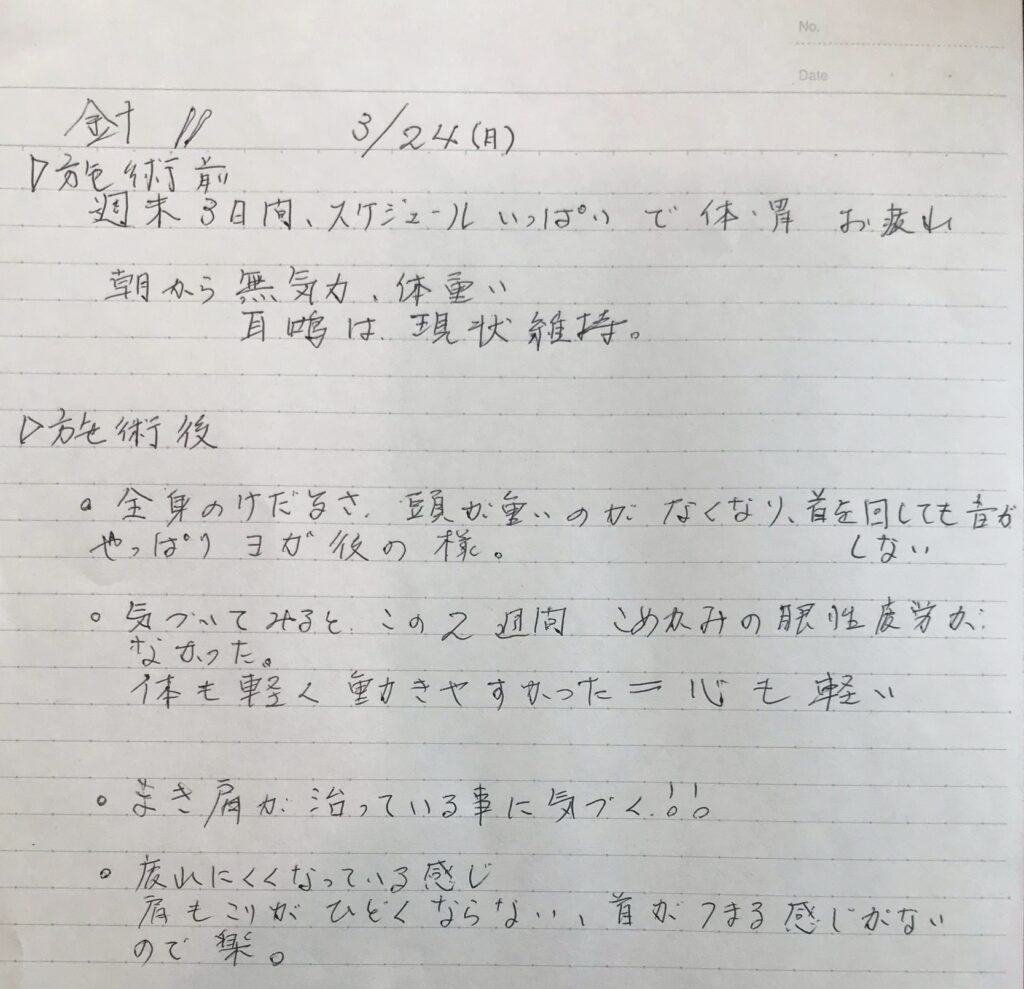 No.
Date
針 〃 3/24(月)
▷施術前
週末3日間、スケジュールいっぱいで体・胃 お疲れ
朝から無気力、体重い
耳鳴は、現状維持。
▷施術後
。全身のけだるさ、頭が重いのが なくなり、首を回しても音が
しない
やっぱりヨガ後の様。
。気づいてみると、この2週間 こめかみの眼性疲労が
なかった。
体も軽く動きやすかった=心も軽い
。まき肩が治っている事に気づく!!
。疲れにくくなっている感じ
肩もこりがひどくならない、首がつまる感じがない
ので楽。